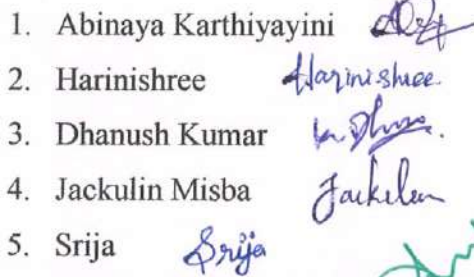 1. Abinaya Karthiyayini
2. Harinishree Harinishree
3. Dhanush Kumar
4. Jackulin Misba Jackulin
5. Srija Srija